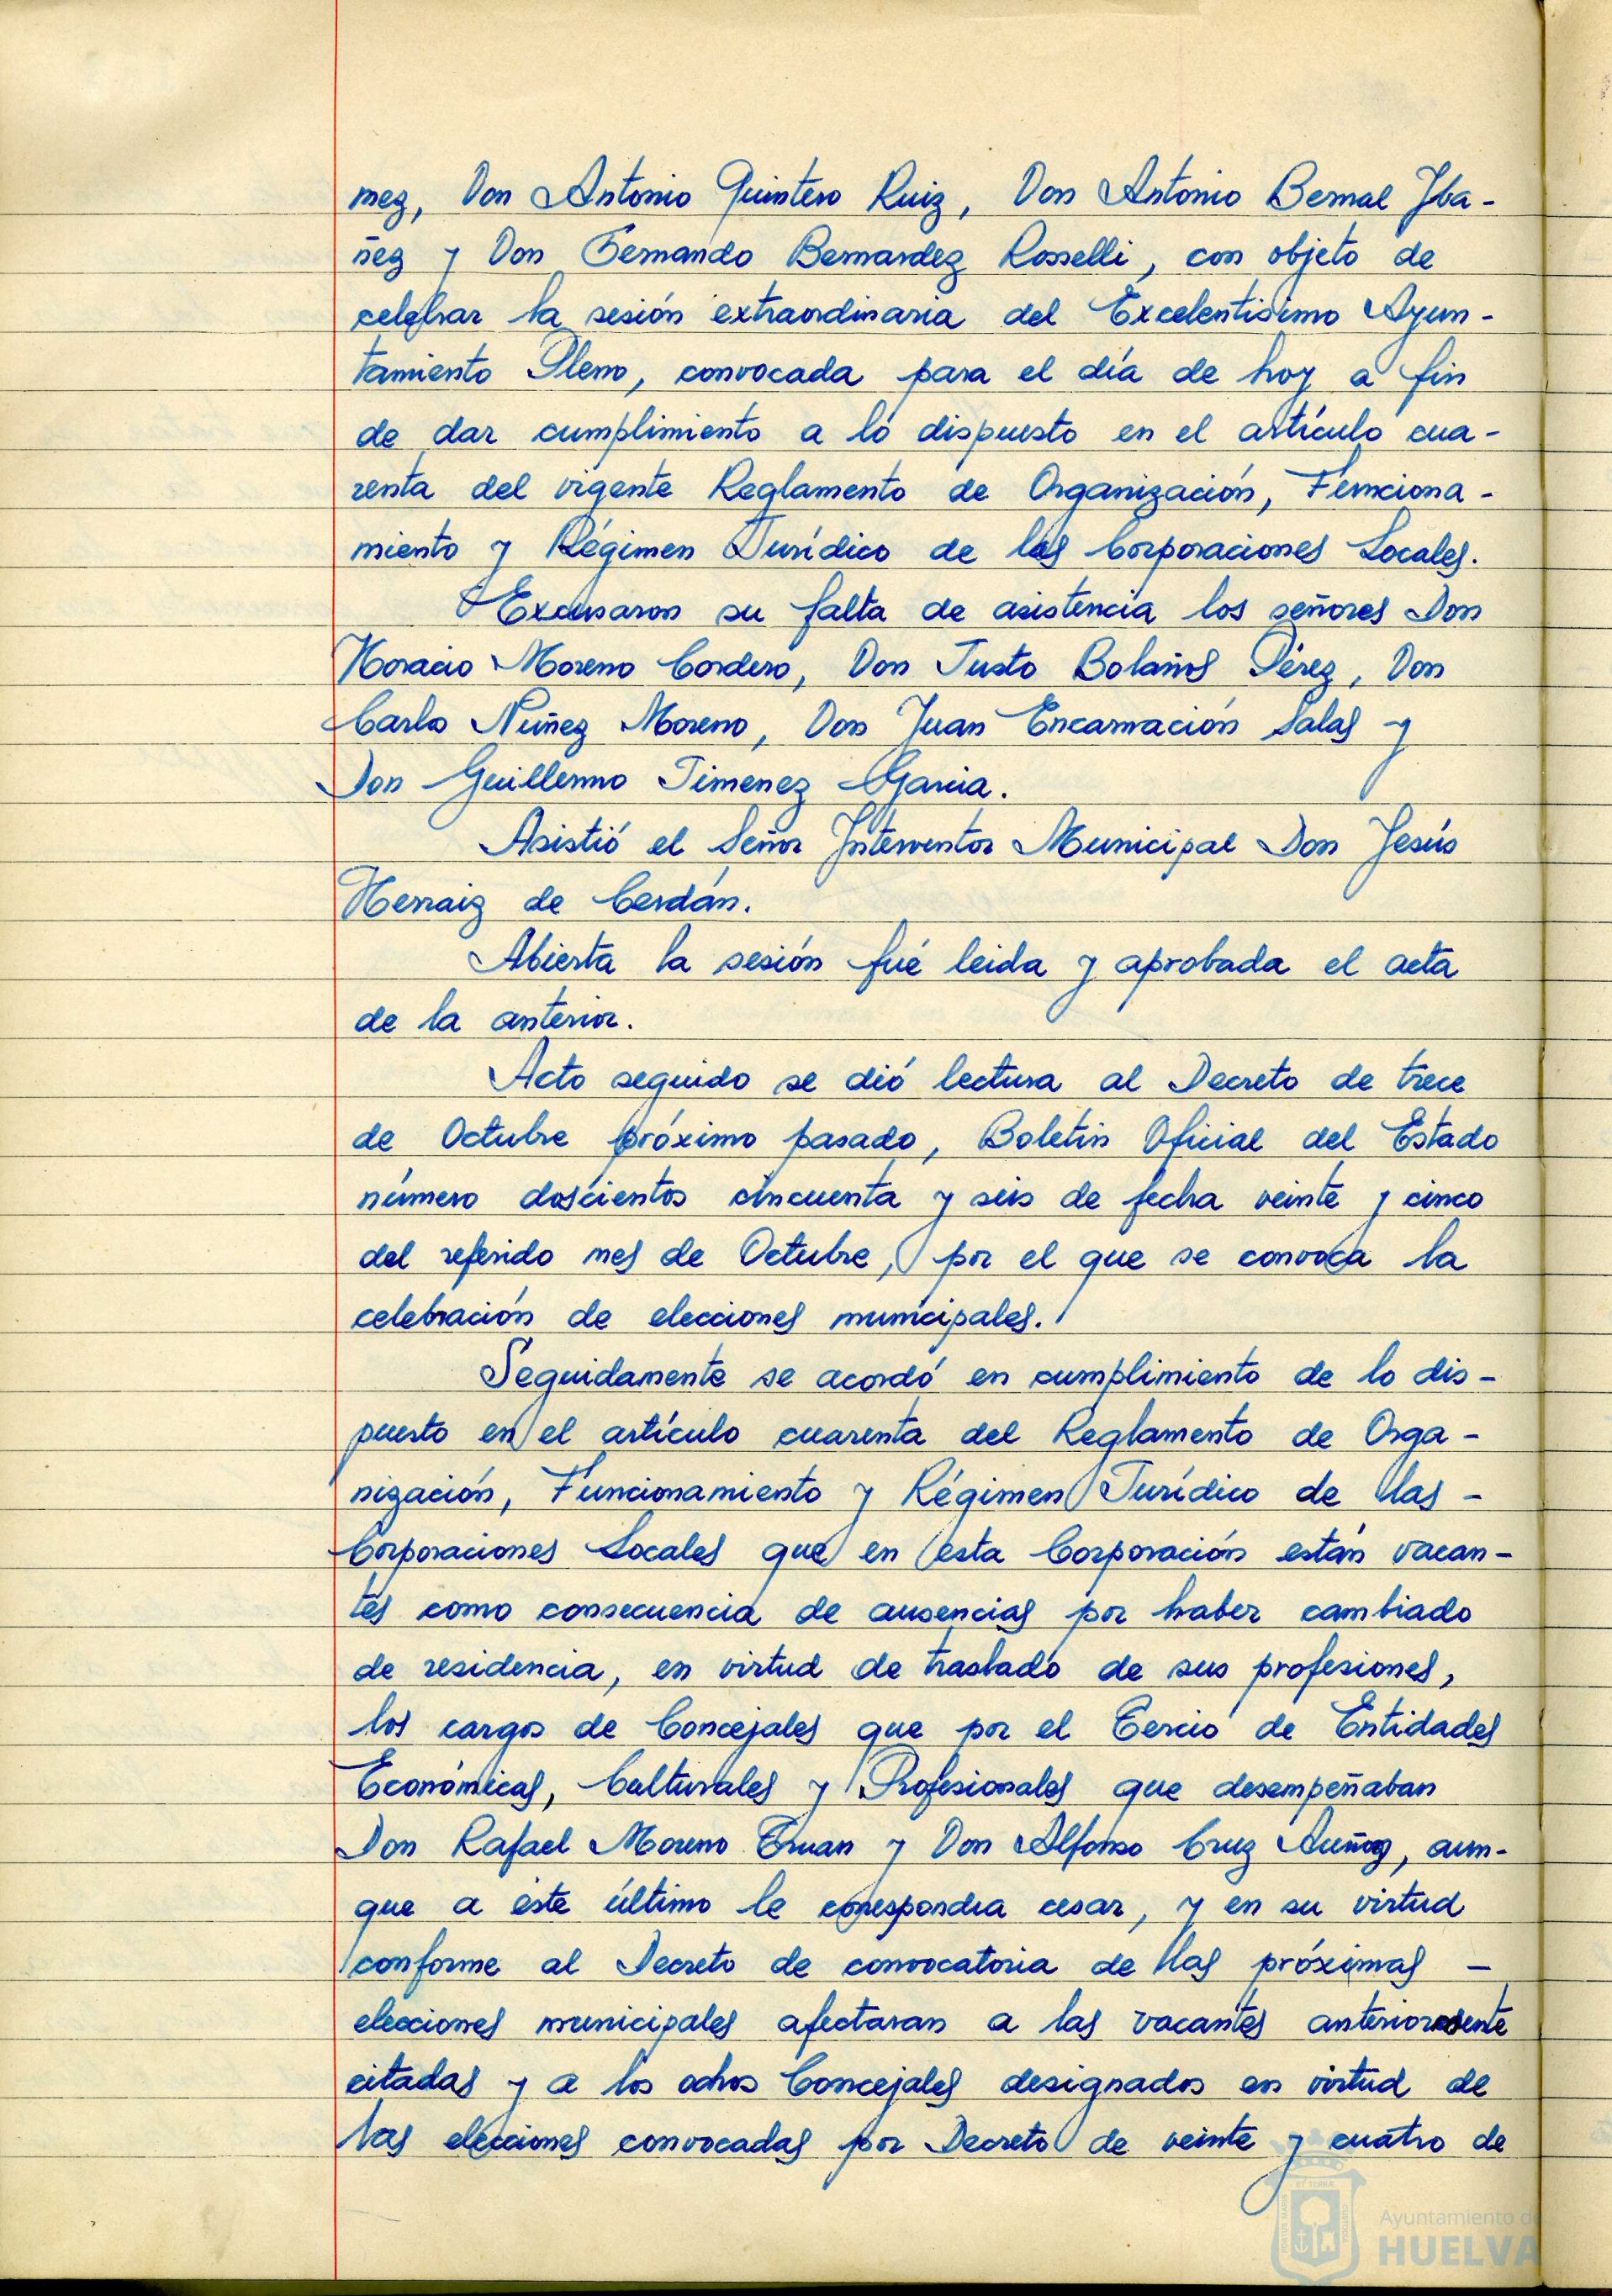 mez, Don Antonio Quintero Ruiz, Don Antonio Bernal Yba-
ñez y Don Fernando Bernardez Rosselli, con objeto de
celebrar la sesión extraordinaria del Excelentisimo Ayun-
tamiento Pleno, convocada para el día de hoy a fin
de dar cumplimiento a lo dispuesto en el artículo cua-
renta del vigente Reglamento de Organización, Funciona-
miento y Régimen Jurídico de las Corporaciones Locales.
Excusaron su falta de asistencia los señores Don
Horacio Moreno Cordero, Don Justo Bolaños Pérez, Don
Carlo Nuñez Moreno, Don Juan Encarnación Salas y
Don Guillermo Jimenez Garcia.
Asistió el Señor Interventor Municipal Don Jesús
Herraiz de Cerdán.
Abierta la sesión fué leida y aprobada el acta
de la anterior.
Acto seguido se dió lectura al Decreto de trece
de Octubre próximo pasado, Boletín Oficial del Estado
número doscientos cincuenta y seis de fecha veinte y cinco
del referido mes de Octubre, por el que se convoca la
celebración de elecciones municipales.
Seguidamente se acordó en cumplimiento de lo dis-
puesto en el artículo cuarenta del Reglamento de Orga-
nización, Funcionamiento y Régimen Jurídico de las -
Corporaciones Locales que en esta Corporación están vacan-
tes como consecuencia de ausencias por haber cambiado
de residencia, en virtud de traslado de sus profesiones,
los cargos de Concejales que por el Tercio de Entidades
Económicas, Culturales y Profesionales que desempeñaban
Don Rafael Moreno Truan y Don Alfonso Cruz Auñoz, aun-
que a éste último le correspondia cesar, y en su virtud
conforme al Decreto de convocatoria de las próximas -
elecciones municipales afectaran a las vacantes anteriormente
citadas y a los ochos Concejales designados en virtud de
las elecciones convocadas por Decreto de veinte y cuatro de
Ayuntamiento de
HUELVA